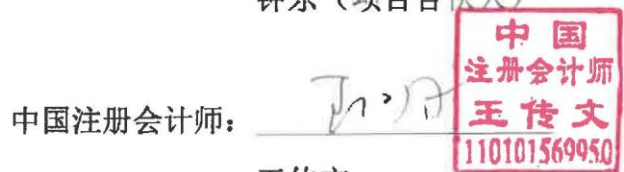 钟东（项目合伙人）
中国
注册会计师
中国注册会计师：
王传文
110101569950
王传文